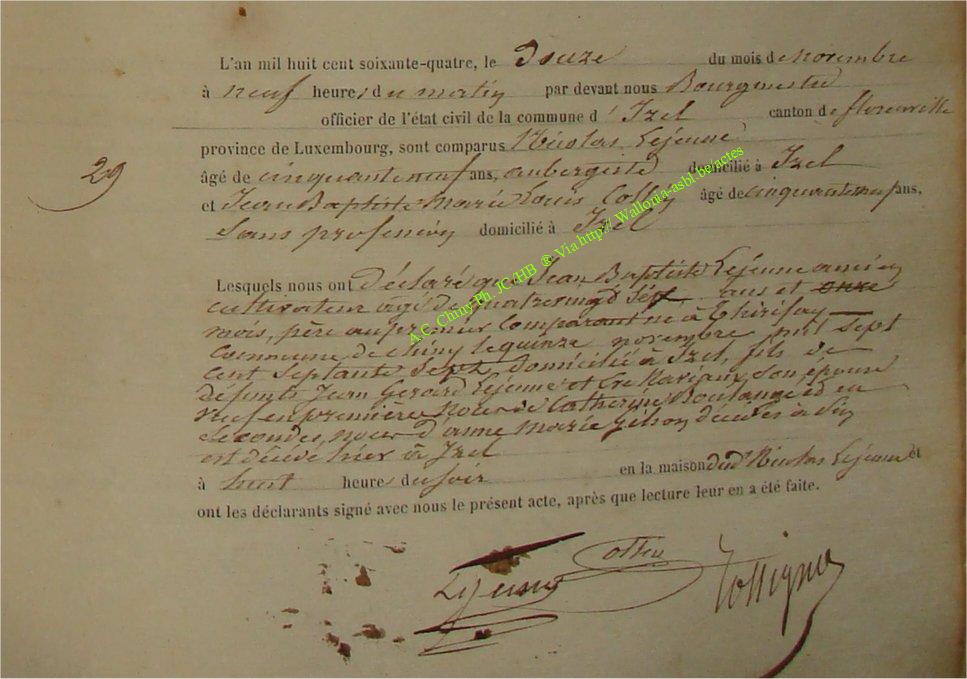 L'an mil huit cent soixante-quatre, le douze du mois de novembre
à neuf heures du matin par devant nous Bourgmestre
officier de l'état civil de la commune d'Izel canton de florenville
29
province de Luxembourg, sont comparus Nicolas Lejeune
âgé de cinquante neuf ans, aubergiste domicilié à Izel
et Jean Baptiste Marie Louis âgé de cinquante neuf ans,
Sans profession domicilié à Izel
A.C. Chiny Ph. JC/HB ® Via http// Wallonia-asbl be/actes
Lesquels nous ont déclaré que Jean Baptiste Lejeune ancien
cultivateur agé de quatre vingt sept ans et onze
mois, père au premier comparant né à
Commune de Chiny le quinze novembre mil sept
cent septante sept domicilié à Izel, fils de
défunts Jean Gerard Lejeune et son épouse
veuf en premières noces de Catherine Boulanger et en
secondes noces d'anne Marie décédés à
est décédé hier à Izel
à huit heures du soir en la maison dud Nicolas Lejeune et
ont les déclarants signé avec nous le présent acte, après que lecture leur en a été faite.
Lejeune